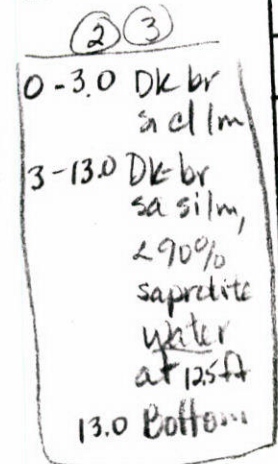 2 3
0-3.0 Dk br
sa cl lm
3-13.0 Dk br
sa silm,
<90%
saprolite
water
at 12.5 ft
13.0 Bottom